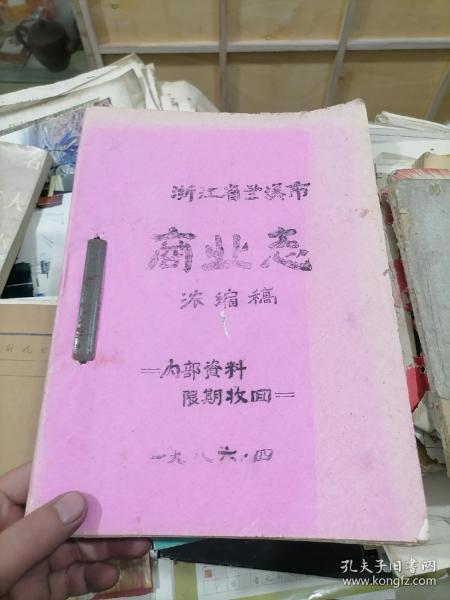 浙江省兰溪市
商业志
浓缩稿
=内部資料
限期收回=
一九八六·四
孔夫子旧书网
www.kongfz.com